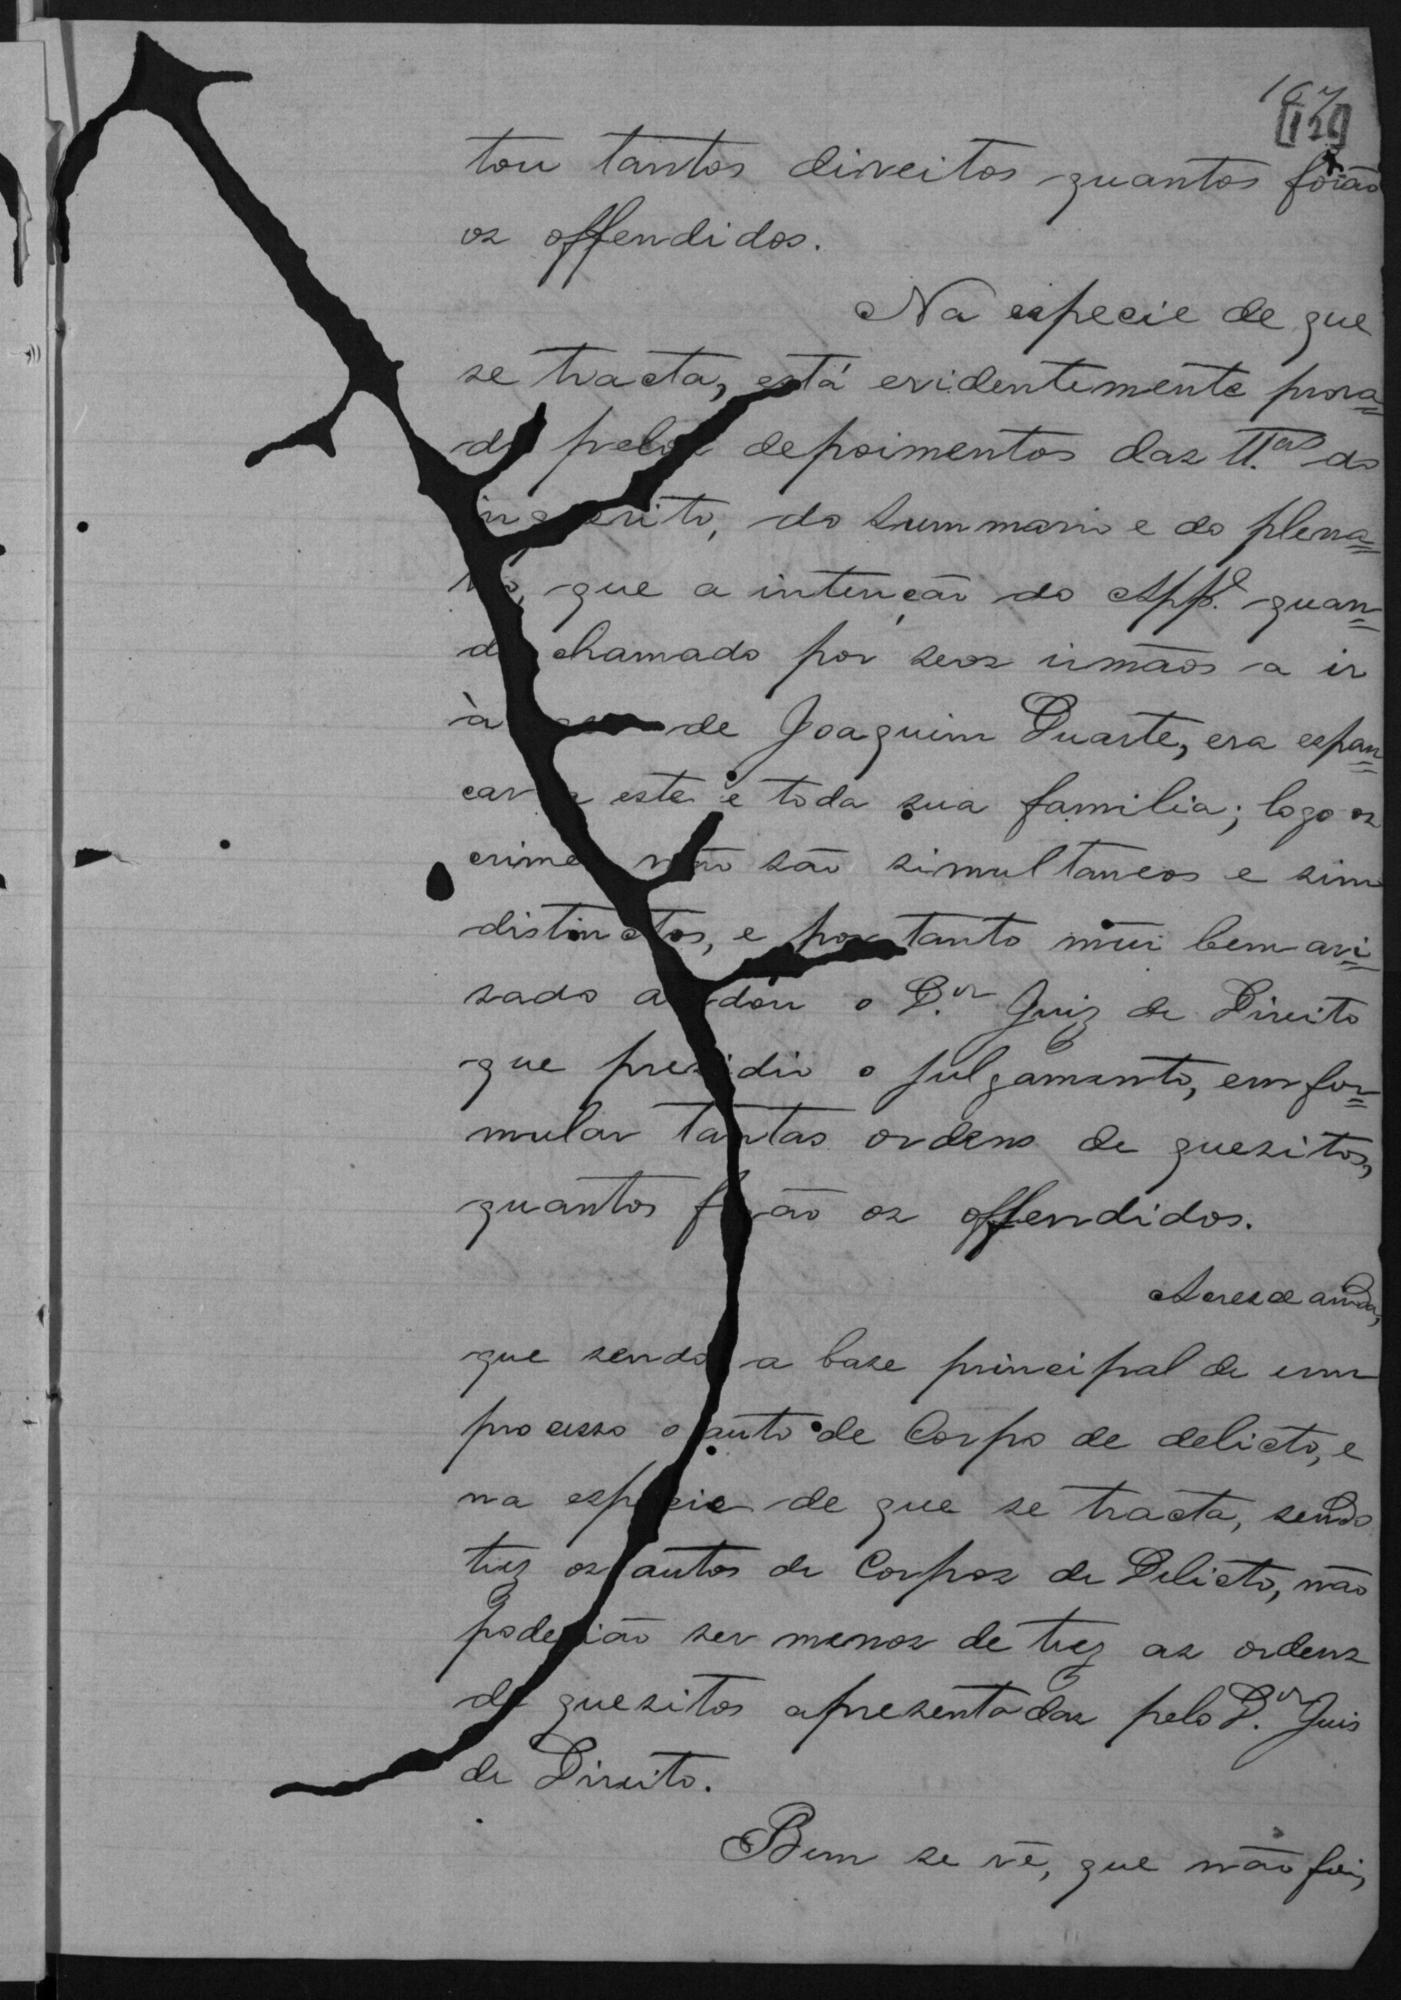 167
129
tou tantos direitos quantos forão
os offendidos.
Na especie de que
se tracta, está evidentemente prova=
do pelos depoimentos das TT.as do
inquerito, do summario e do plena=
rio, que a intenção do App.e quan=
do chamado por seos irmãos a ir
à casa de Joaquim Duarte, era espan=
car a este e toda sua familia; logo os
crimes não são simultaneos e sim
distinctos, e portanto mui bem avi=
sado andou o D.or Juiz de Direito
que presidio o julgamento, em for=
mular tantas ordens de quesitos,
quantos forão os offendidos.
Acresce ainda,
que sendo a base principal de um
processo o auto de Corpo de delicto, e
na especie de que se tracta, sendo
trez os autos de Corpos de Delicto, não
poderião ser menos de trez as ordens
de quesitos apresentadas pelo D.or Juis
de Direito.
Bem se vê, que não foi,